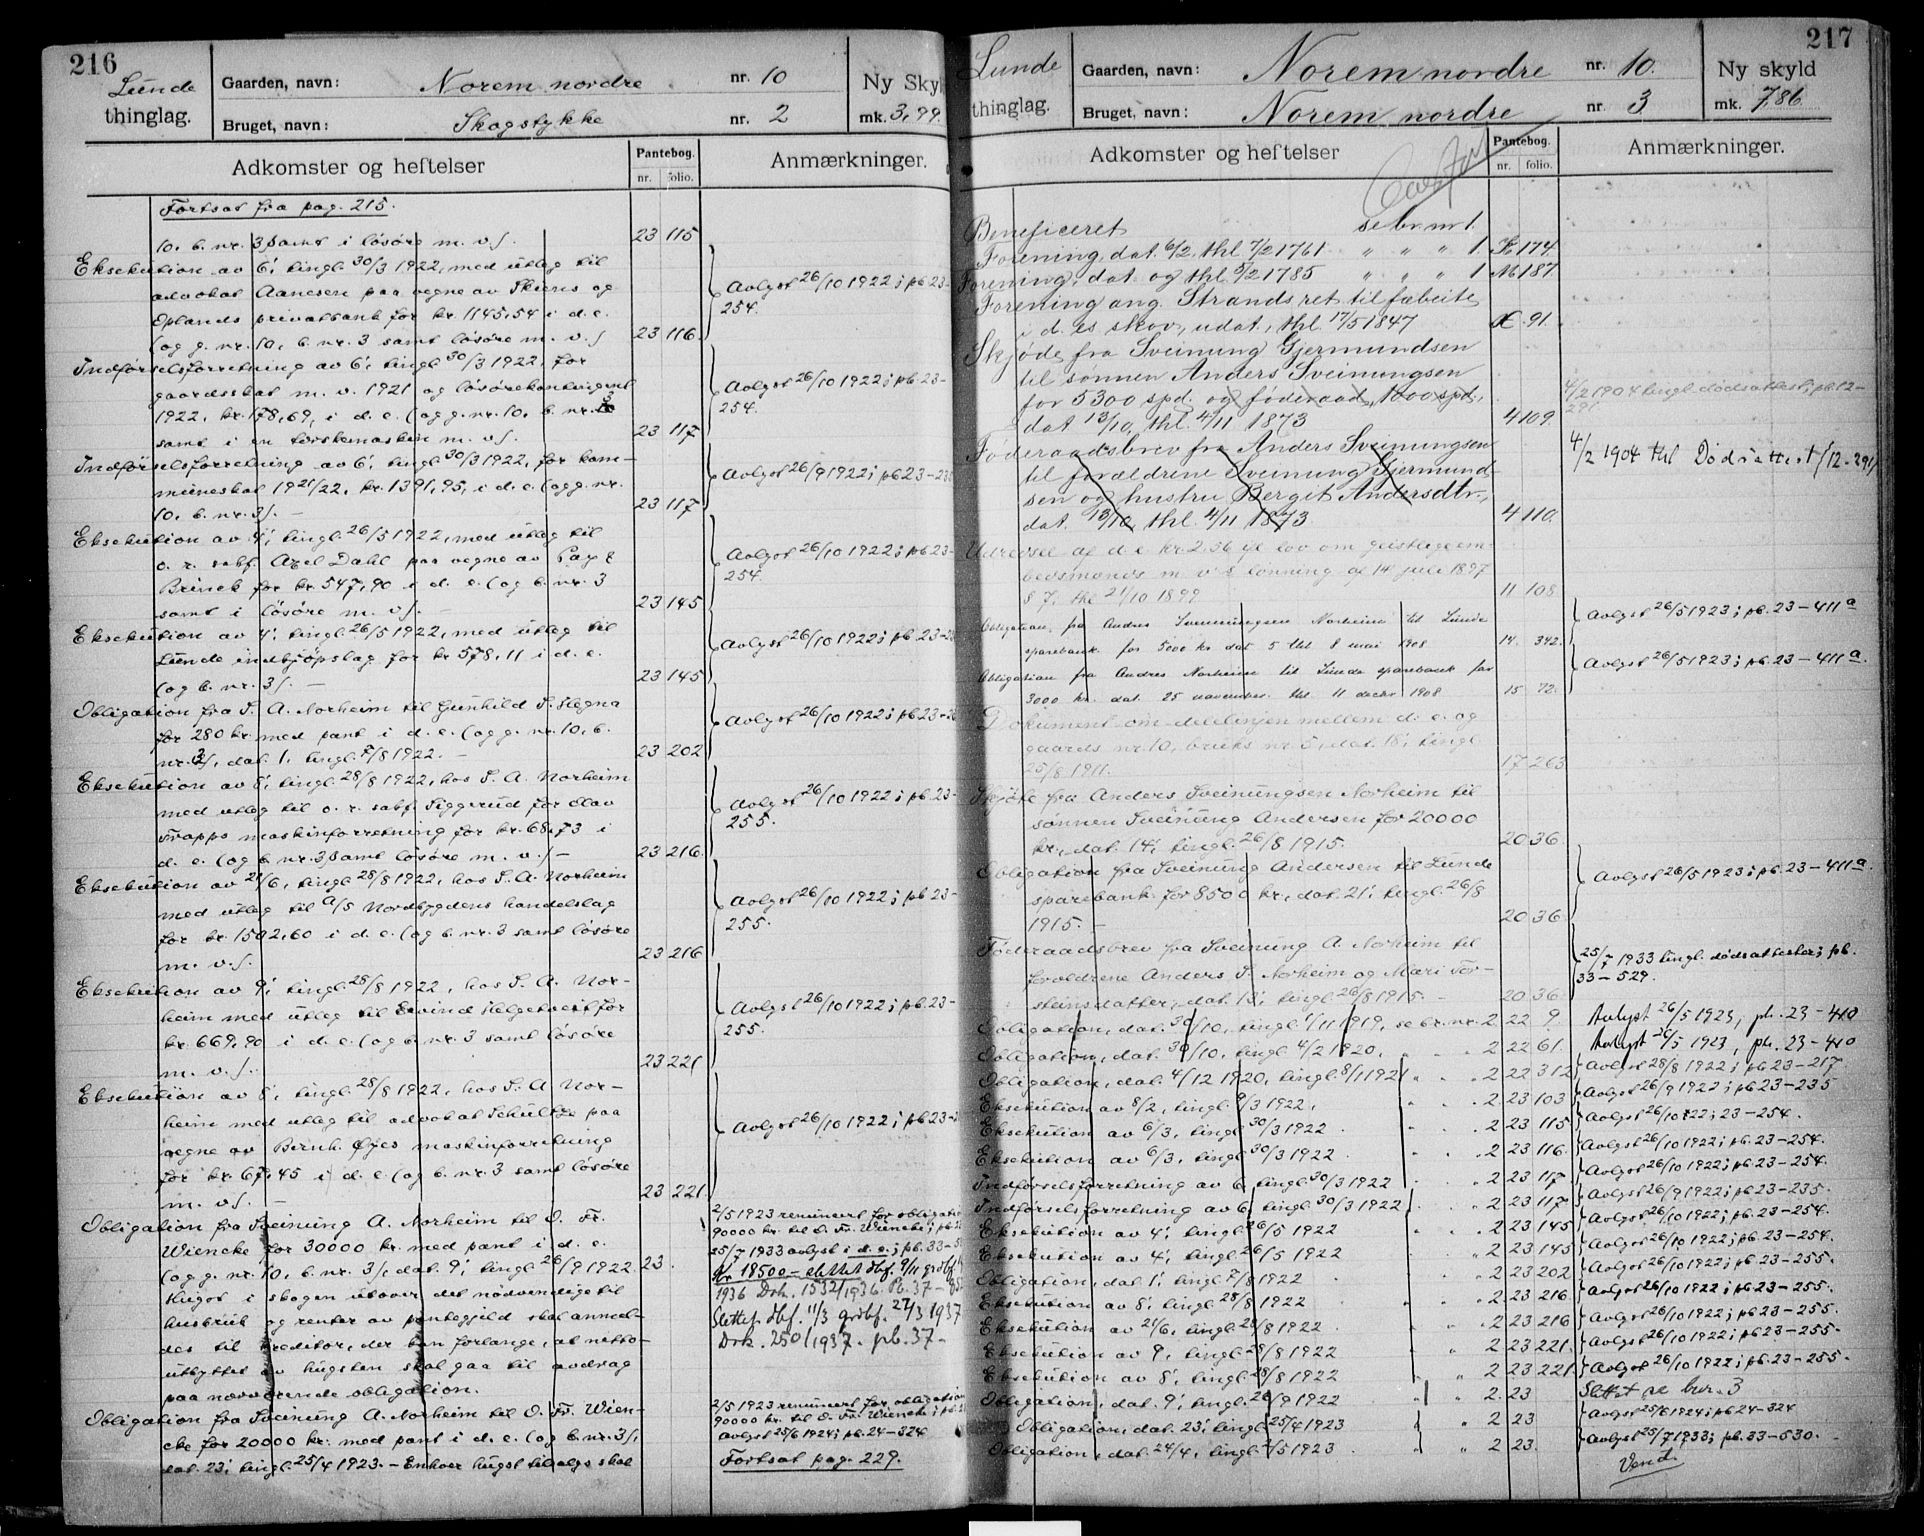 216
Lunde
thinglag.
Gaarden, navn: Norem nordre nr. 10
Bruget, navn: Skogstykke nr. 2
Ny Skyl
mk. 3,99.
Adkomster og heftelser
Pantebog.
nr. folio.
Anmærkninger.
Fortsat fra pag. 215.
10, b. nr. 3 samt i lösöre m. v.). 23 115
Eksekution av 6', tingl. 30/3 1922, med utlæg til
advokat Aanesen paa vegne av Skiens og
Oplands privatbank for kr. 1145,54 i d. e.
(og g. nr. 10, b. nr. 3 samt lösöre m. v.) 23 116.
Avlyst 26/10 1922; pb. 23-
254.
Indførselsforretning av 6', tingl. 30/3 1922, for
gaardsskat m. v. 1921 og lösörekontingent
1922, kr. 178,69, i d. e. (og g. nr. 10, b. nr. 3
samt i en torskemaskin m. v.). 23 117
Avlyst 26/10 1922; pb. 23-
254.
Indførselsforretning av 6', tingl. 30/3 1922, for kom-
muneskat 1921/22, kr. 1391,95, i d. e. (og g. nr.
10, b. nr. 3). – 23 117
Avlyst 26/9 1922; pb 23-235
Eksekution av 4', tingl. 26/5 1922, med utlæg til
o. r. sakf. Axel Dahl paa vegne av Pay &
Brinck for kr. 547,90 i d. e. (og b. nr. 3
samt i lösöre m. v.). – 23 145
Avlyst 26/10 1922; pb 23-
254.
Eksekution av 4', tingl. 26/5 1922, med utlæg til
Lunde indkjöpslag for kr. 578,11 i d. e.
(og b. nr. 3). – 23 145
Avlyst 26/10 1922; pb. 23-
Obligation fra S. A. Norheim til Gunhild S. Slegna
for 280 kr. med pant i d. e. (og g. nr. 10, b.
nr. 3), dat. 1, tingl. 7/8 1922. – 23 202
Avlyst 26/10 1922; pb. 23-
Eksekution av 8', tingl. 28/8 1922, hos S. A. Norheim
med utlæg til o. r. sakf. Siggerud for Olav
Trapps maskinforretning for kr. 68,73 i
d. e. (og b. nr. 3 samt lösöre m. v.) – 23 216.
Avlyst 26/10 1922; pb. 23-
255.
Eksekution av 21/6, tingl. 28/8 1922, hos S. A. Norheim
med utlæg til A/S Nordbygdens handelslag
for kr. 1502,60 i d. e. (og b. nr. 3 samt lösöre
m. v.). 23 216
Avlyst 26/10 1922; pb 23-
255.
Eksekution av 9', tingl. 28/8 1922, hos S. A. Nor-
heim med utlæg til Eivind Helgetveit for
kr. 669,90 i d. e. (og b. nr. 3 samt lösöre
m. v.). 23 221
Avlyst 26/10 1922; pb 23-
255.
Eksekution av 8', tingl. 28/8 1922, hos S. A. Nor-
heim med utlæg til advokat Schultze paa
vegne av Bernh. Øyes maskinforretning
for kr. 67,45 i d. e. (og b. nr. 3 samt lösöre
m. v.). – 23 221.
Avlyst 26/10 1922; pb. 23-
Obligation fra Sveinung A. Norheim til O. Fr.
Wiencke for 30000 kr. med pant i d. e.
(og g. nr. 10, b. nr. 3), dat. 9', tingl. 26/9 1922. 23.
Hugst i skogen utover det nødvendige til
husbruk og renter av pantegjeld skal anmel-
des til kreditor, der kan forlange, at netto-
utbyttet av hugsten skal gaa til avdrag
paa nærværende obligation.
2/5 1923 renunsert for obligation
90000 kr. til O. Fr. Wiencke; pb.
25/7 1933 avlyst i d. e.; pb. 33-5
kr 18500 – slettet
1936 Dok. 1532/1936. Pb. 37-
Slettet 11/3 27/3 1937
Dok. 250/1937. pb. 37-
Obligation fra Sveinung A. Norheim til O. Fr. Wien-
cke for 20000 kr. med pant i d. e. (og b. nr. 3),
dat. 23', tingl. 25/4 1923. – Enhver hugst tilsalgs skal
2/5 1923 renunsert for obligation
90000 kr. til O. Fr. Wiencke; pb.
Avlyst 25/6 1924; pb. 24-324
Fortsat pag. 229.
217
Lunde
thinglag.
Gaarden, navn: Norem nordre nr. 10.
Bruget, navn: Norem nordre nr. 3
Ny skyld
mk. 7,86.
Adkomster og heftelser
Pantebog.
nr. folio.
Anmærkninger.
Beneficeret se br. nr 1.
Forening, dat. 6/2, thl 7/2 1761 " " " 1 174.
Forening, dat. og thl. 9/2 1785 " " " 1 M 187.
Forening ang. Strandsret til fæbeite
i d. es skov, udat., thl. 17/5 1847 91.
Skjøde fra Sveinung Gjermundsen
til sønnen Anders Sveinungsen
for 5300 spd. og føderaad, 1000 spd.,
dat 13/10, thl. 4/11 1873 4 109.
4/2 1904 tingl. dødsattest; pb. 12-
291
Føderaadsbrev fra Anders Sveinungsen
til forældrene Sveinung Gjermund-
sen og hustru Berget Andersdtr.,
dat. 13/10, thl. 4/11 1873 4 110.
4/2 1904 thl Dødsattest 12-291
Udredsel af d. e. kr. 2,36 ifl lov om geistlige em-
bedsmænds m. v's lønning af 14 juli 1897
§ 7, thl 21/10 1899 11 108
Obligation fra Andres Sveinungsen Norheim til Lunde
sparebank for 5000 kr dat 5 thl 8 mai 1908 14. 342.
Avlyst 26/5 1923; pb. 23-411 a
Obligation fra Andres Norheim til Lunde sparebank for
3000 kr. dat. 25 november thl. 11 decbr 1908 15 72.
Avlyst 26/5 1923; pb. 23-411 a.
Dokument om delelinjen mellem d. e. og
gaards nr. 10, bruks nr. 5, dat. 18', tingl.
25/8 1911. 17 263
Skjøte fra Anders Sveinungsen Norheim til
sønnen Sveinung Andersen for 20000
kr., dat. 14', tingl. 26/8 1915. 20 36.
Obligation fra Sveinung Andersen til Lunde
sparebank for 8500 kr., dat. 21', tingl. 26/8
1915. – 20 36.
Avlyst 26/5 1923; pb. 23-411 a.
Føderaadsbrev fra Sveinung A. Norheim til
forældrene Anders S. Norheim og Mari Tor-
steinsdatter, dat. 13', tingl. 26/8 1915. – 20 36
25/7 1933 tingl. dødsattester; pb.
33-529.
Obligation, dat. 30/10, tingl. 1/11 1919, se br. nr. 2 22 9. Avlyst 26/5 1923, pb. 23-410
Obligation, dat. 30/10, tingl. 4/2 1920, " " 2 22 61. Avlyst 26/5 1923, pb. 23-410
Obligation, dat. 4/12 1920, tingl. 8/1 1921 " " 2 22 312 Avlyst 28/8 1922; pb 23-217
Eksekution av 8/2, tingl. 9/3 1922, " " 2 23 103 Avlyst 26/9 1922; pb 23-235
Eksekution av 6/3, tingl. 30/3 1922. " " 2 23 115 Avlyst 26/10 22; 23-254.
Eksekution av 6/3, tingl. 30/3 1922. " " 2 23 116. Avlyst 26/10 1922; pb. 23-254.
Indførselsforretning av 6, tingl. 30/3 1922 " " 2 23 117 Avlyst 26/10 1922; pb. 23-254.
Indførselsforretning av 6, tingl. 30/3 1922 " " 2 23 117 Avlyst 26/9 1922; pb. 23-235.
Eksekution av 4', tingl. 26/5 1922 " " 2 23 145 Avlyst 26/10 1922; pb. 23-254.
Eksekution av 4', tingl. 26/5 1922 " " 2 23 145 Avlyst 26/10 1922; pb. 23-254.
Obligation, dat. 1', tingl. 7/8 1922 " " 2 23 202 Avlyst 26/10 1922; pb 23-255.
Eksekution av 8', tingl. 28/8 1922 " " 2 23 216. Avlyst 26/10 1922; pb 23-255.
Eksekution av 21/6, tingl. 28/8 1922 " " 2 23 216 Avlyst 26/10 1922; pb 23-255.
Eksekution av 9, tingl. 28/8 1922 " " 2 23 221. Avlyst 26/10 1922; pb. 23-255.
Eksekution av 8', tingl. 28/8 1922 " " 2 23 221 Avlyst 26/10 1922; pb. 23-255.
Obligation, dat. 9', tingl. 26/9 1922 " " 2. 23 Slettet se bnr. 3
Obligation, dat. 23', tingl. 25/4 1923 " " 2 23 Avlyst 25/6 1924; pb 24-324
Obligation, dat. 24/4, tingl. 2/5 1923. " " 2 23. Avlyst 25/7 1933; pb. 33-530.
Vend.